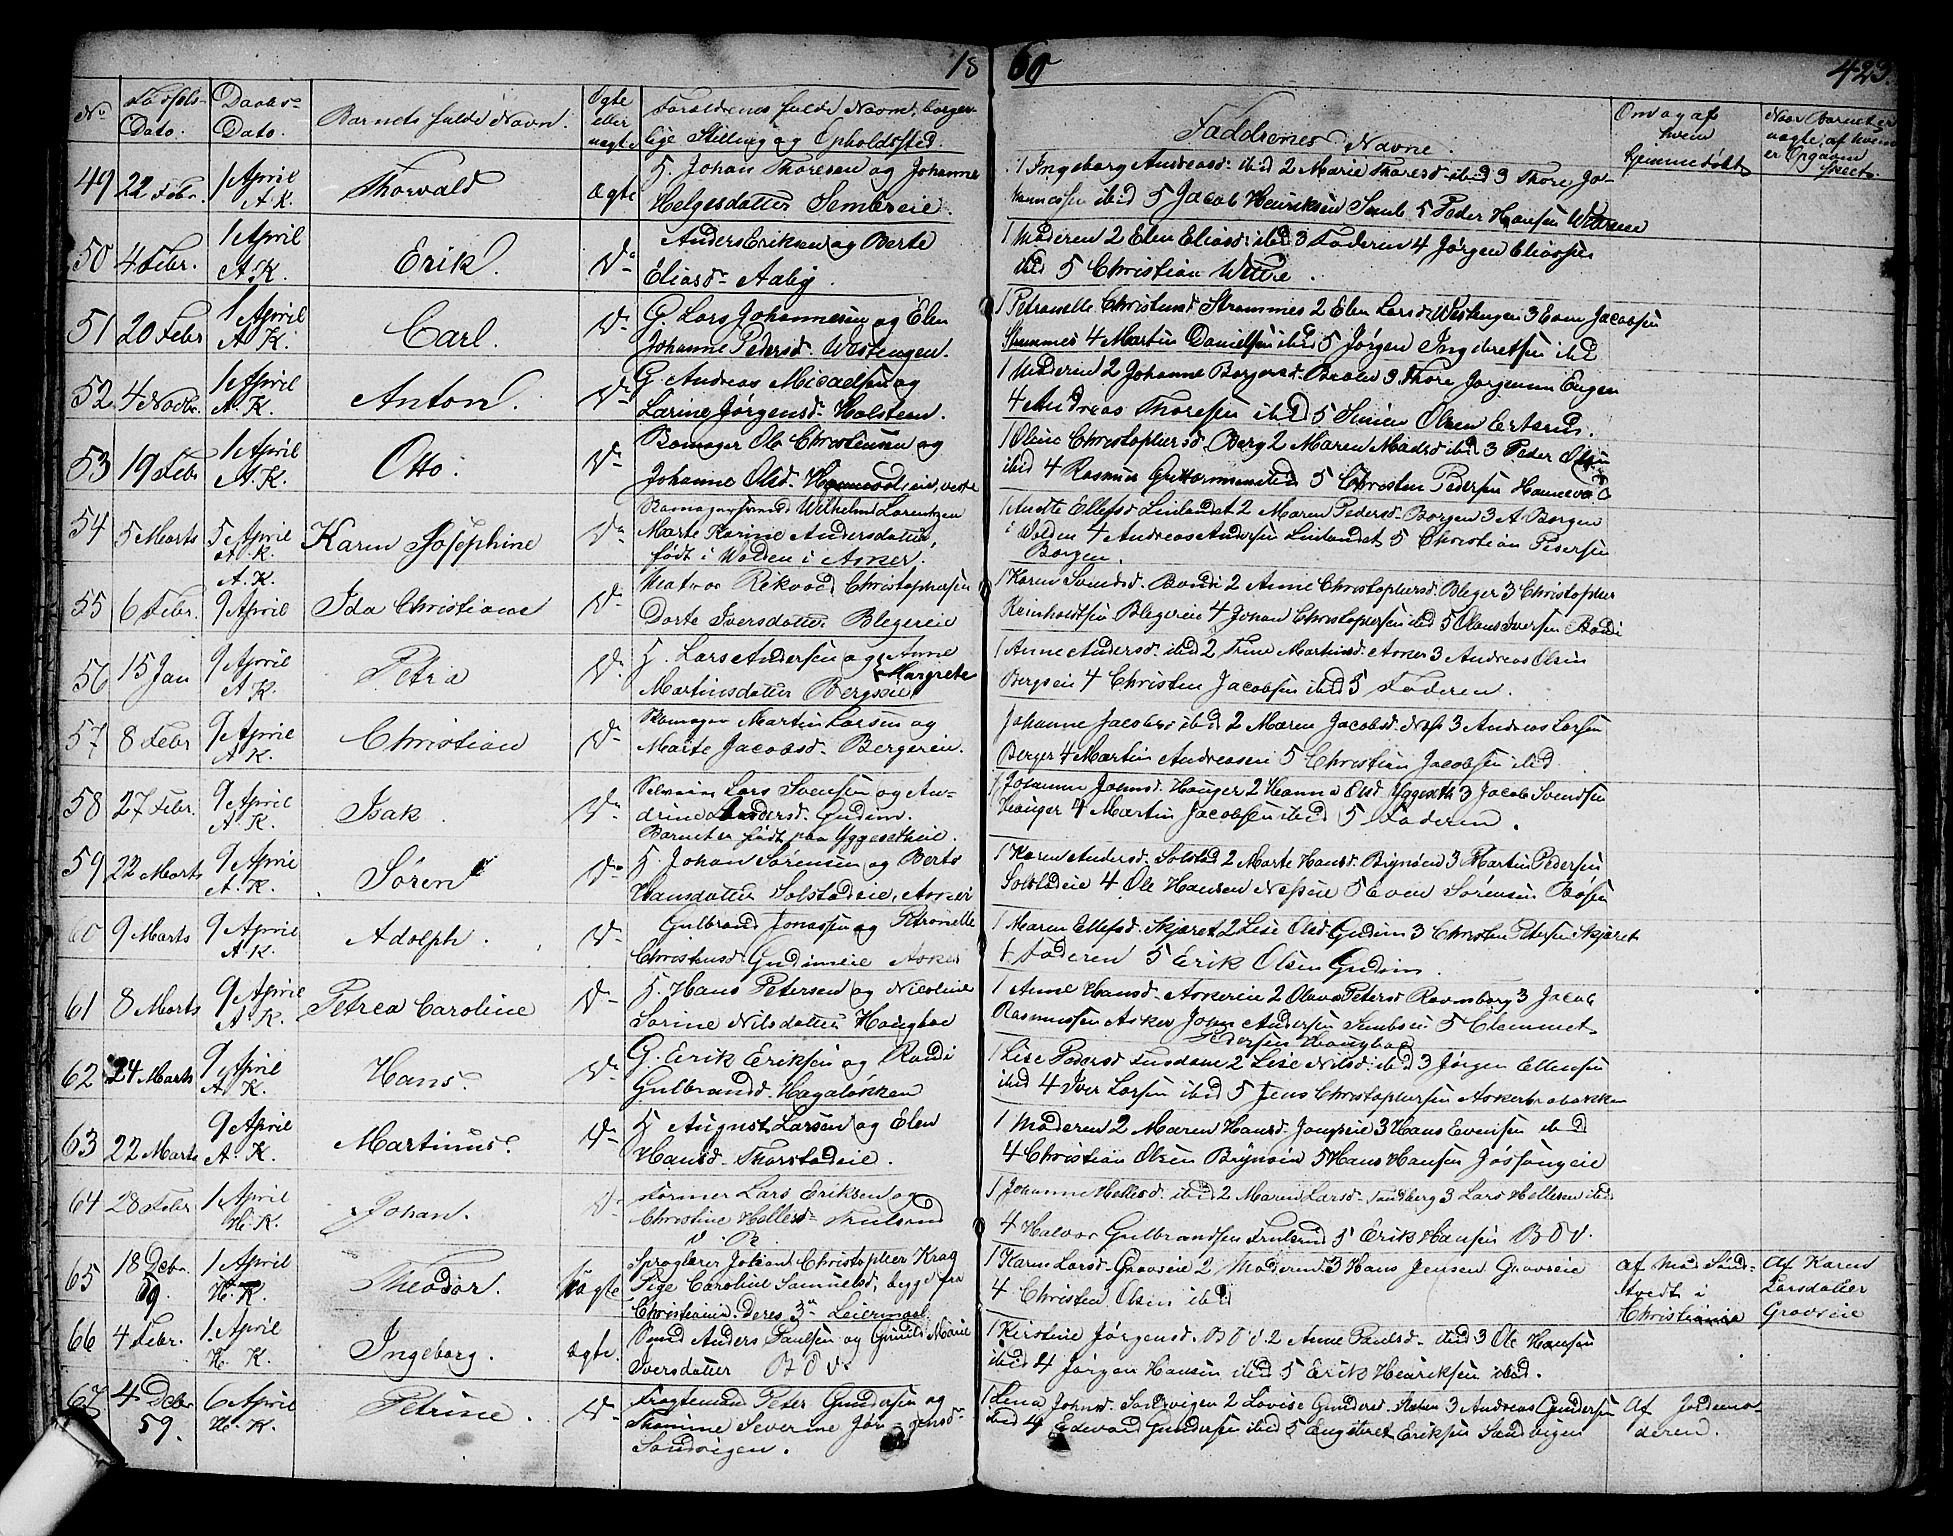 18 60 423.
No
Fødsels-
Dato.
Daabs-
Dato.
Barnets fulde Navn.
Ægte
eller
uægte
Forældrenes fulde Navne, borger-
lige Stilling og Opholdssted.
Faddrenes Navne.
Om og af
hvem
hjemmedøbt
Naar Barnet er
uægte, af hvem
er Opgaven
skeet.
49 22 Febr. 1 April A. K. Thorvald Ægte H. Johan Thoresen og Johanne
Helgesdatter Sembreie.
1 Ingeborg Andreasd. ibid 2 Marie Thoresd. ibid 3 Thore Jo-
hannessen ibid 5 Jacob Henriksen Semb 5 Peder Hansen
50 4 Febr. 1 April A. K. Erik. Do Anders Eriksen og Berte
Eliasd. Aaby.
1 Moderen 2 Elen Eliasd. ibid 3 Faderen 4 Jørgen Eliassen
ibid 5 Christian
51 20 Febr 1 April A K. Carl. Do G Lars Johannesen og Elen
Johanne Pedersd. Westengen.
1 Petronelle Christensd. Strømmes 2 Elen Larsd. Westengen 3 Even Jacobsen
4 Martin Danielsen ibid 5 Jørgen Ingebretsen ibid
52 4 Novbr. 1 April A. K. Anton. Do G Andreas Micaelsen og
Larine Jørgensd. Holsteen.
1 Moderen 2 Johanne Borgersd. 3 Thore Jørgensen Engen
4 Andreas Thoresen ibid 5 Simen Olsen
53 19 Febr 1 April A. K. Otto. Do Skomager Ole Christensen og
Johanne Olsd.
1 Oline Christophersd. Berg 2 Maren Madsd. ibid 3 Peder Olsen
ibid 4 Rasmus Guttormsen ibid 5 Christen Pedersen
54 5 Marts 5 April A. K. Karen Josephine Do Skomagersvend Wilhelm Lorentzen
Marte Karine Andersdatter,
født i Wolden i Asker.
1 Anette Ellefsd. Linlandet 2 Maren Pedersd. Borgen 3 A Borgen
i Volden 4 Andreas Andersen Linlandet 5 Christian Pedersen
Borgen
55 6 Febr. A. K. 9 April Ida Christiane Do Christophersen
Dorte Iversdatter Blegereie
1 Karen Svendsd. Bondi 2 Anne Christophersd. Bleger 3 Christopher
Reinholdtsen Blegereie 4 Johan Christophersen ibid 5 Olaus Iversen Bondi
56 15 Jan 9 April A K. Petra Do H. Lars Andersen og Anne
Margrete
Martinsdatter Bergseie
1 Anne Andersd. ibid 2 Trine Martinsd. Asker 3 Andreas Olsen
Bergseie 4 Christen Jacobsen ibid 5 Faderen.
57 8 Febr 9 April A K. Christian Do Skomager Martin Larsen og
Marte Jacobsd. Bergereie.
Johanne Jacobsd. ibid 2 Maren Jacobsd. Næs 3 Andreas Larsen
Berger 4 Martin Andreasen 5 Christian Jacobsen ibid
58 27 Febr. 9 April A. K. Isak. Do Selveier Lars Svensen og An-
drine Andersd. Gudim.
Barnet er født paa Yggesetheie.
1 Johanne Johnsd. Hauger 2 Hanna Olsd. Yggeseth 3 Jacob Svendsen
Hauger 4 Martin Jacobsen ibid 5 Faderen.
59 22 Marts 9 April A. K. Søren Do H. Johan Sørensen og Berte
Hansdatter Solstadeie, Asker
1 Karen Andersd. Solstad 2 Marte Hansd. Brynøen 3 Martin Pedersen
Solstadeie 4 Ole Hansen Næseie 5 Even Sørensen
60 9 Marts 9 April A K. Adolph. Do Gulbrand Jonassen og Petronelle
Christensd. Gudimeie Asker
1 Maren Ellefsd. Skjæret 2 Lise Olsd. Gudim 3 Christen Petersen Skjæret
4 Faderen 5 Erik Olsen Gudim.
61 8 Marts 9 April A K. Petrea Caroline Do H. Hans Petersen og Nicoline
Sorine Nilsdatter Haugboe
1 Anne Hansd. Askereie 2 Olava Petersd. Ravnsborg 3 Jacob
Rasmussen Asker John Andersen 5 Clemmet
Pedersen Haugboe
62 24 Marts 9 April A K. Hans. Do G. Erik Eriksen og Randi
Gulbrandsd. Hagaløkken
1 Lise Pedersd. 2 Lise Nilsd. ibid 3 Jørgen Ellensen
ibid 4 Iver Larsen ibid 5 Jens Christophersen Askerbrobakken
63 22 Marts 9 April A K. Martinus. Do H August Larsen og Elen
Hansd. Thorstadeie.
1 Moderen 2 Maren Hansd. 3 Hans Evensen ibid
4 Christian Olsen Brynøen 5 Hans Hansen
64 28 Febr. 1 April H. K. Johan. Do Former Lars Eriksen og
Christine Hellesd.
1 Johanne Hellesd. ibid 2 Maren Larsd. Sandberg 3 Lars Hellesen ibid
4 Halvor Gulbrandsen 5 Erik Hansen B O V.
65 18 Decbr. 59. 1 April H. K. Theodor. Uægte Johan Christopher Krag
Pige Caroline Samuelsd., begge fra
Christiania. Deres 3die Leiermaal
1 Karen Larsd. Gravseie 2 Moderen 3 Hans Jensen Gravseie
4 Christen Olsen ibid
af Mad. Sand-
stvedt i
Christiania
Af Karen
Larsdatter
Gravseie
66 4 Febr. 1 April H. K. Ingeborg. ægte. Smed Anders Paulsen og Gunild Marie
Iversdatter B O V.
1 Kirstine Jørgensd. B O V. 2 Anne Paulsd. ibid 3 Ole Hansen
ibid 4 Jørgen Hansen ibid 5 Erik Henriksen ibid.
67 4 Decbr 59. 6 April H. K. Petrine. Do Fragtemand Peter Gundersen og
Thomine Severine Jør-gensd.
Sandvigen.
1 Lena Johnsd. Sandvigen 2 Lovise Gundersd. 3 Andreas Gundersen
ibid 4 Edevard Gundersen ibid 5 Engebret Eriksen Sandvigen
Af Jordemo-
deren.